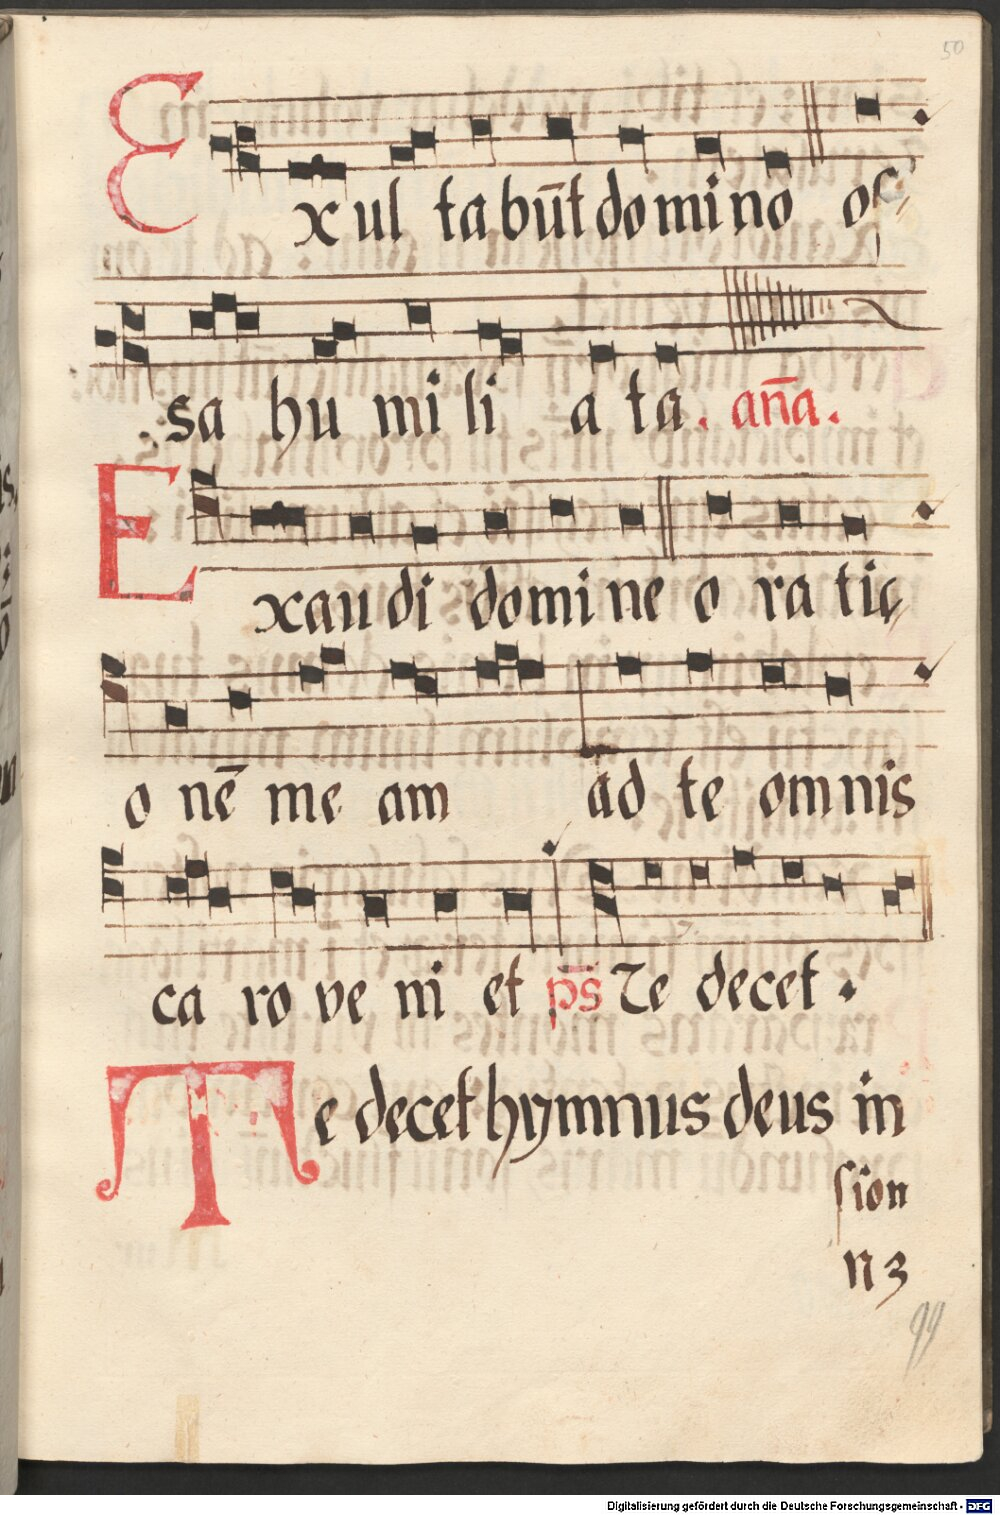 50
Exul tabūt domino os
sa hu mi li a ta. an̄a.
Exaudi domine o ra tio
o nē me am ad te omnis
ca ro ve ni et ps̄ Te decet.
Te decet hymnus deus in
sion
n3
99
Digitalisierung gefördert durch die Deutsche Forschungsgemeinschaft - DFG